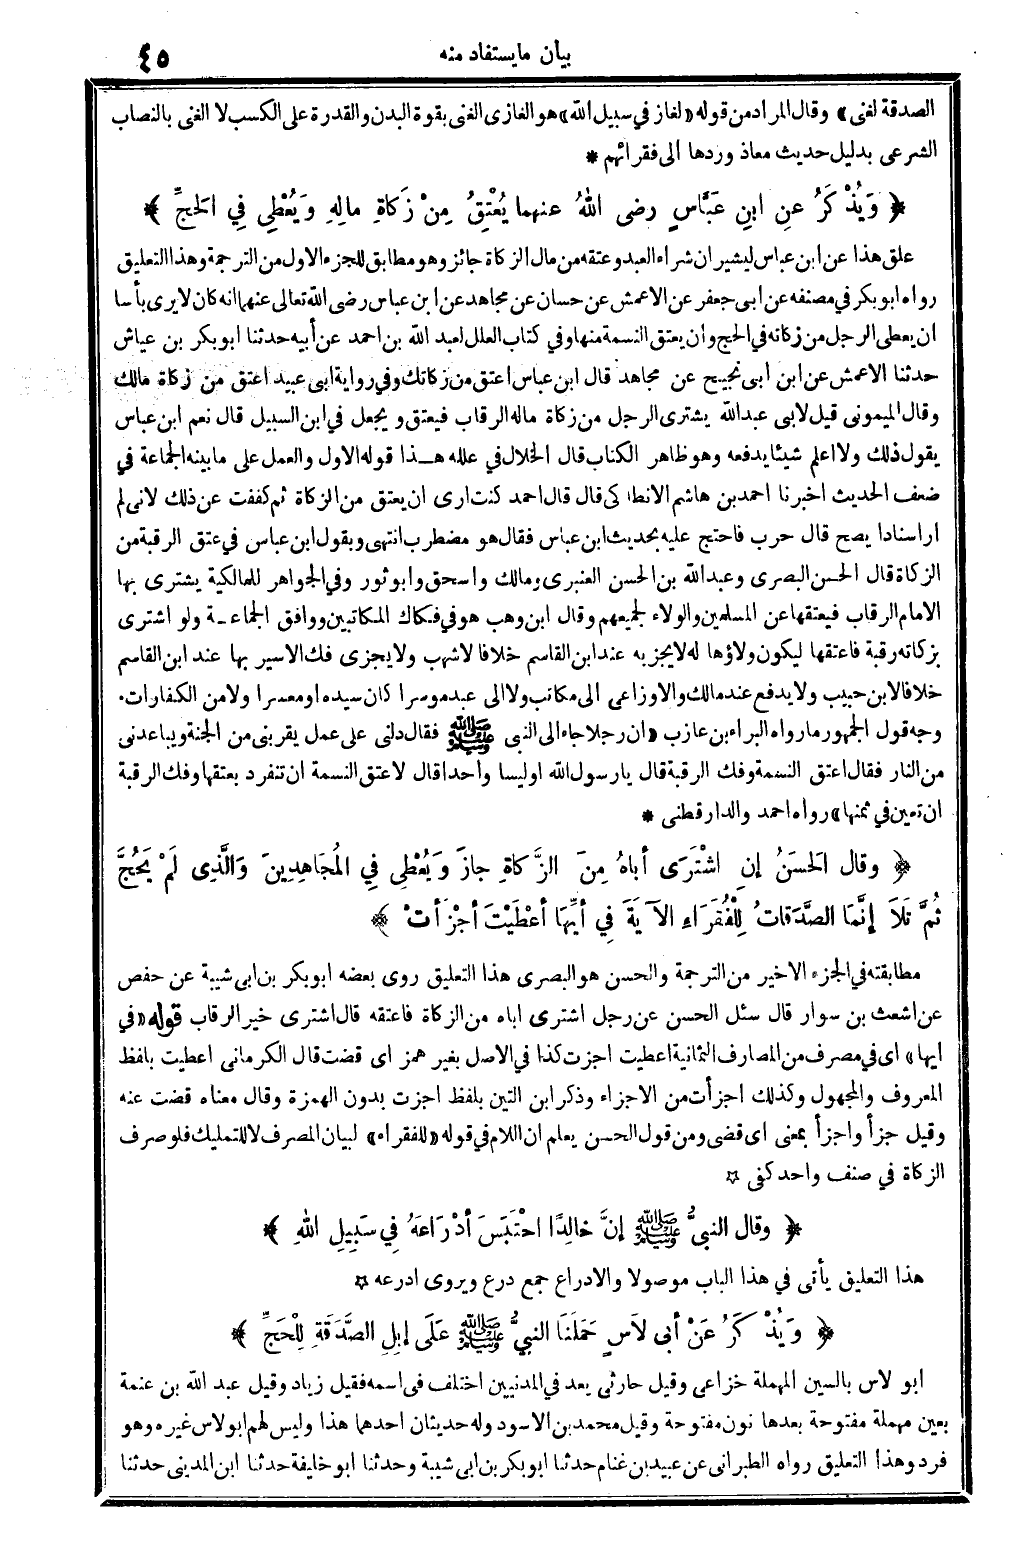 بيان مايستفاد منه
٤٥
الصدقة لغنى» وقال المراد من قوله «لغاز في سبيل الله» هو الغازى الغنى بقوة البدن والقدرة على الكسب لا الغنى بالنصاب
الشرعى بدليل حديث معاذ وردها الى فقرائهم *
﴿ وَيُذْكَرُ عنِ ابنِ عَبَّاسٍ رضى اللهُ عنهما يُعْتِقُ مِنْ زَكاةِ مالِهِ وَيُعْطِي فِي الحَجِّ ﴾
علق هذا عن ابن عباس ليشير ان شراء العبد وعتقه من مال الزكاة جائز وهو مطابق للجزء الاول من الترجمة وهذا التعليق
رواه ابو بكر في مصنفه عن ابى جعفر عن الاعمش عن حسان عن مجاهد عن ابن عباس رضى الله تعالى عنهما انه كان لايرى بأسا
ان يعطى الرجل من زكاته في الحج وان يعتق النسمة منها وفي كتاب العلل لعبد الله بن احمد عن أبيه حدثنا ابو بكر بن عياش
حدثنا الاعمش عن ابن ابى نجيح عن مجاهد قال ابن عباس اعتق من زكاتك وفي رواية ابى عبيد اعتق من زكاة مالك
وقال الميمونى قيل لابى عبدالله يشترى الرجل من زكاة ماله الرقاب فيعتق ويجعل في ابن السبيل قال نعم ابن عباس
يقول ذلك ولا اعلم شيئا يدفعه وهو ظاهر الكتاب قال الخلال في علله هـذا قوله الاول والعمل على ما بينه الجماعة في
ضعف الحديث اخبرنا احمد بن هاشم الانطاكى قال قال احمد كنت ارى ان يعتق من الزكاة ثم كففت عن ذلك لانى لم
ار اسنادا يصح قال حرب فاحتج عليه بحديث ابن عباس فقال هو مضطرب انتهى وبقول ابن عباس في عتق الرقبة من
الزكاة قال الحسن البصرى وعبدالله بن الحسن العنبرى ومالك واسحق وابو ثور وفي الجواهر للمالكية يشترى بها
الامام الرقاب فيعتقها عن المسلمين والولاء لجميعهم وقال ابن وهب هو في فكاك المكاتبين ووافق الجماعـة ولو اشترى
بزكاته رقبة فاعتقها ليكون ولاؤها له لا يجزيه عند ابن القاسم خلافا لاشهب ولا يجزى فك الاسير بها عند ابن القاسم
خلافا لابن حبيب ولا يدفع عند مالك والاوزاعى الى مكاتب ولا الى عبد موسرا كان سيده او معسرا ولا من الكفارات.
وجه قول الجمهور ما رواه البراء بن عازب «ان رجلا جاء الى النبى ﷺ فقال دلنى على عمل يقربنى من الجنة ويباعدنى
من النار فقال اعتق النسمة وفك الرقبة قال يارسول الله اوليسا واحدا قال لا عتق النسمة ان تنفرد بعتقها وفك الرقبة
ان تعين في ثمنها» رواه احمد والدارقطنى *
﴿ وقال الحَسَنُ إنِ اشْتَرَى أباهُ مِنَ الزَّكاةِ جازَ وَيُعْطِى فِي المُجَاهِدِينَ وَالَّذِى لَمْ يَحُجَّ
ثُمَّ تَلاَ إنَّمَا الصَّدَقاتُ لِلْفُقَرَاءِ الآيَةَ فِي أيِّهَا أعْطَيْتَ أجْزَأتْ ﴾
مطابقته في الجزء الاخير من الترجمة والحسن هو البصرى هذا التعليق روى بعضه ابو بكر بن ابى شيبة عن حفص
عن اشعث بن سوار قال سئل الحسن عن رجل اشترى اباه من الزكاة فاعتقه قال اشترى خير الرقاب قوله «في
ايها» اى في مصرف من المصارف الثمانية اعطيت اجزت كذا في الاصل بغير همز اى قضت قال الكرمانى اعطيت بلفظ
المعروف والمجهول وكذلك اجزأت من الاجزاء وذكر ابن التين بلفظ اجزت بدون الهمزة وقال معناه قضت عنه
وقيل جزأ واجزأ بمعنى اى قضى ومن قول الحسن يعلم ان اللام في قوله «للفقراء» لبيان المصرف لا للتمليك فلو صرف
الزكاة في صنف واحد كفى ☆
﴿ وقال النبيُّ ﷺ إنَّ خالِدًا احْتَبَسَ أدْرَاعَهُ فِي سَبِيلِ اللهِ ﴾
هذا التعليق يأتى في هذا الباب موصولا والادراع جمع درع ويروى ادرعه ☆
﴿ وَيُذْكَرُ عَنْ أبى لاَسٍ حَمَلَنَا النبيُّ ﷺ عَلَى إبِلِ الصَّدَقَةِ لِلْحَجِّ ﴾
ابو لاس بالسين المهملة خزاعى وقيل حارثى يعد في المدنيين اختلف فى اسمه فقيل زياد وقيل عبد الله بن عنمة
بعين مهملة مفتوحة بعدها نون مفتوحة وقيل محمد بن الاسود وله حديثان احدهما هذا وليس لهم ابو لاس غيره وهو
فرد وهذا التعليق رواه الطبرانى عن عبيد بن غنام حدثنا ابو بكر بن ابى شيبة وحدثنا ابو خليفة حدثنا ابن المدينى حدثنا